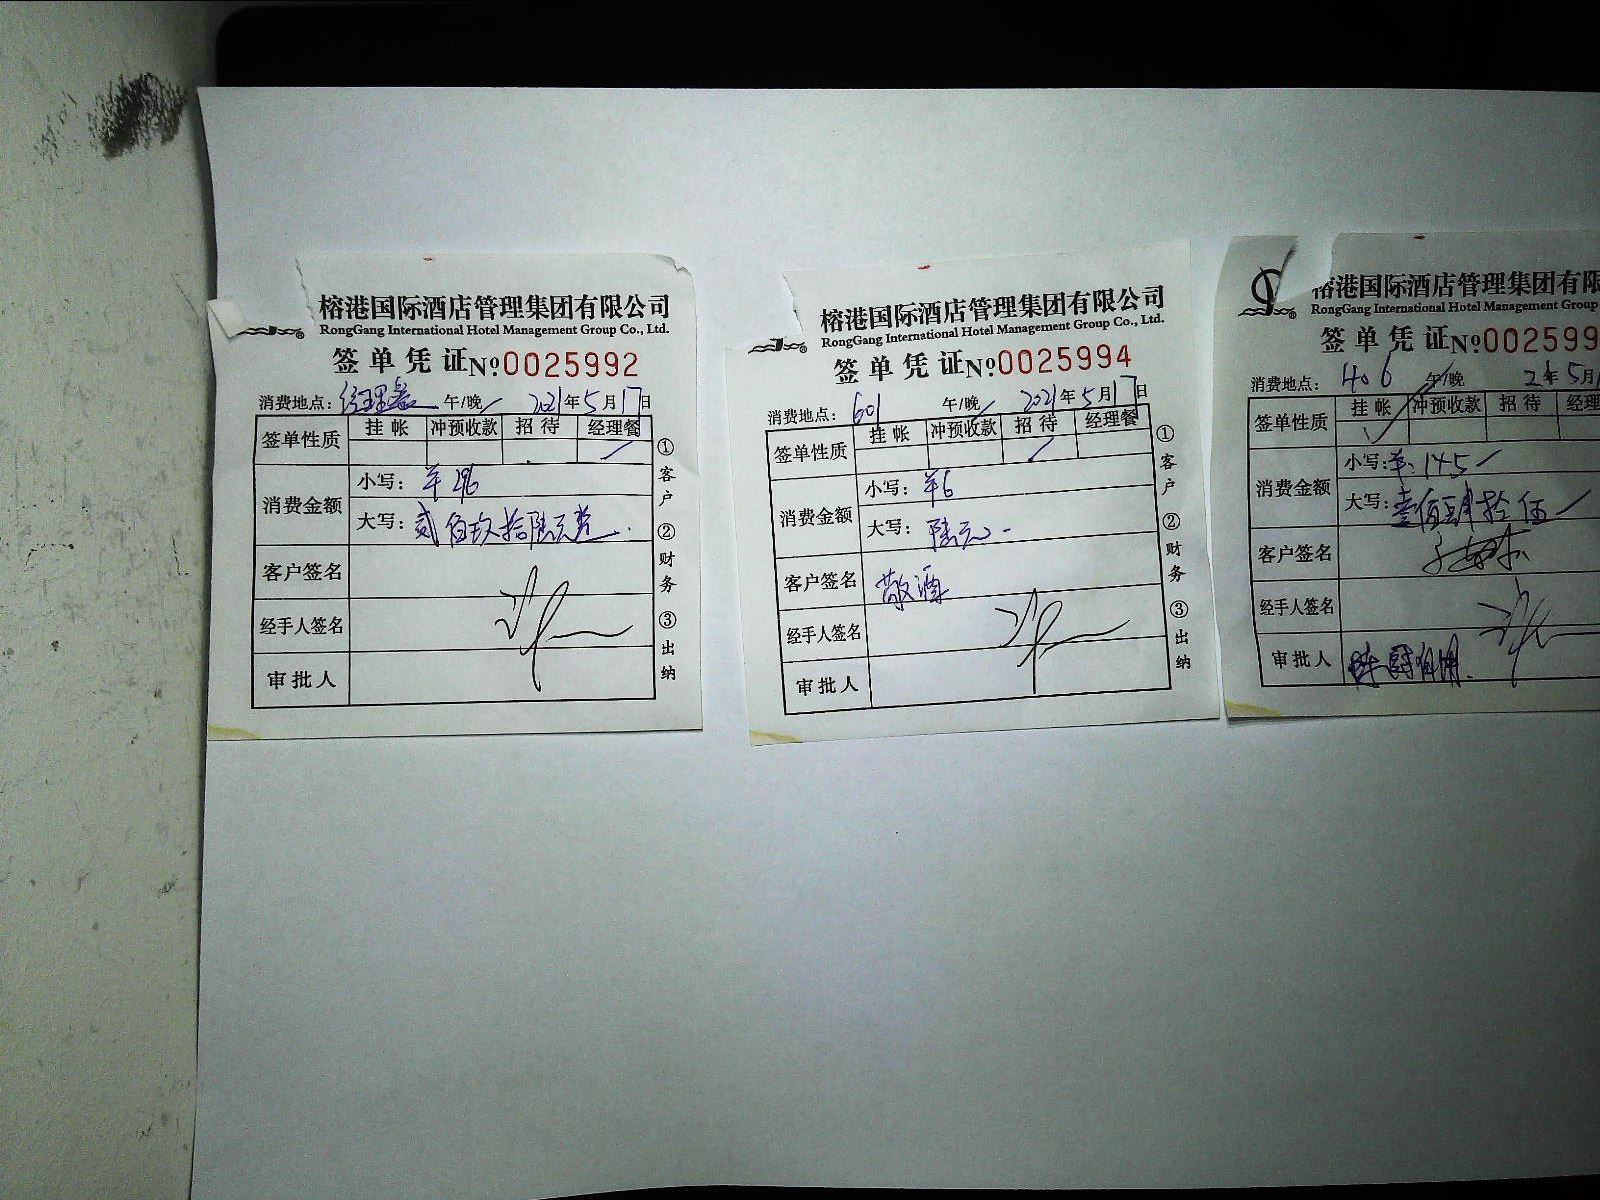 榕港国际酒店管理集团有限公司
RongGang International Hotel Management Group Co., Ltd.
签单凭证 №0025992
消费地点：经理餐 午/晚 2021年5月17日
签单性质 挂帐 冲预收款 招待 经理餐
消费金额 小写：¥296
大写：贰佰玖拾陆元整
客户签名
经手人签名
审批人
①客户 ②财务 ③出纳
榕港国际酒店管理集团有限公司
RongGang International Hotel Management Group Co., Ltd.
签单凭证 №0025994
消费地点：601 午/晚 2021年5月17日
签单性质 挂帐 冲预收款 招待 经理餐
消费金额 小写：¥6
大写：陆元
客户签名 敬酒
经手人签名
审批人
①客户 ②财务 ③出纳
榕港国际酒店管理集团有限
RongGang International Hotel Management Group
签单凭证 №002599
消费地点：406 午/晚 21年5月
签单性质 挂帐 冲预收款 招待 经理
消费金额 小写：¥145
大写：壹佰肆拾伍
客户签名
经手人签名
审批人